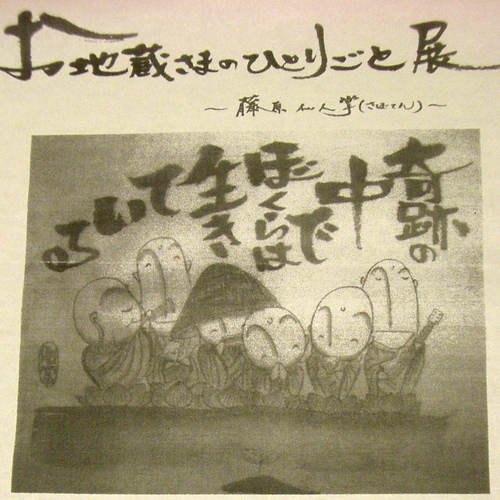 お地蔵さまのひとりごと展
~ 藤原 仙人掌(さぼてん) ~
奇跡の
中で
ぼくらは
生き
ている